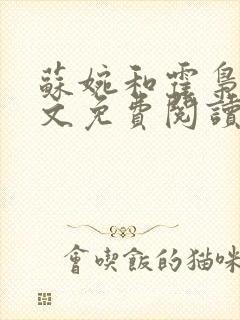 蘇婉和霆梟
文免費閱讀
會喫飯的猫咪